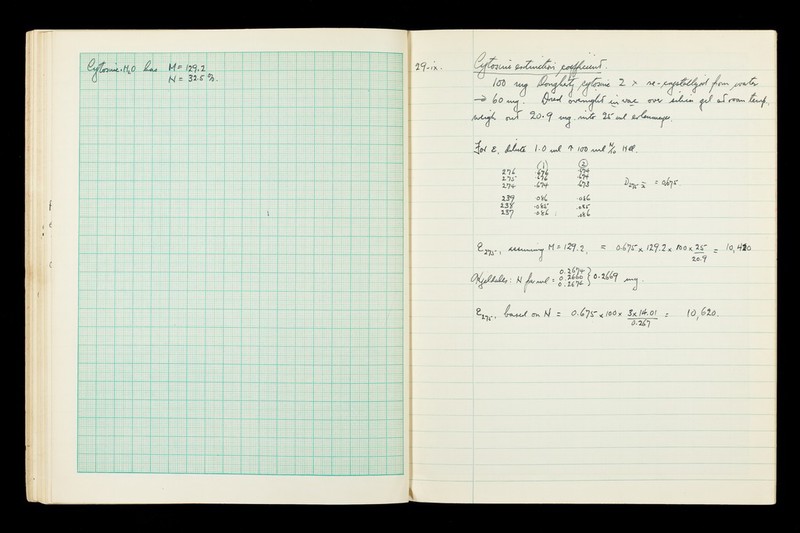 Cytosine·H₂O has M = 129.2
N = 32.5 %.
29-ix. Cytosine extinction coefficient.
100 mg Dougherty cytosine 2 × re-crystallized from water
→ 60 mg. Dried overnight in vac over silica gel at room temp,
weigh out 20.9 mg into 25 ml
For ε, dilute 1.0 ml ↑ 100 ml N/10 HCl.
(1) (2)
276 .676 .674
275 .676 .674
274 .674 .673 = 0.675
239 .086 .086
238 .085 .085
237 .086 .086
ε₂₇₅, assuming M = 129.2, = 0.675 × 129.2 × 100 × 25/20.9 = 10,420
Kjeldahls: N per ml = 0.2674 0.2660 0.2674 } 0.2669 mg.
ε₂₇₅, based on N = 0.675 × 100 × 3 × 14.01/0.267 = 10,620.